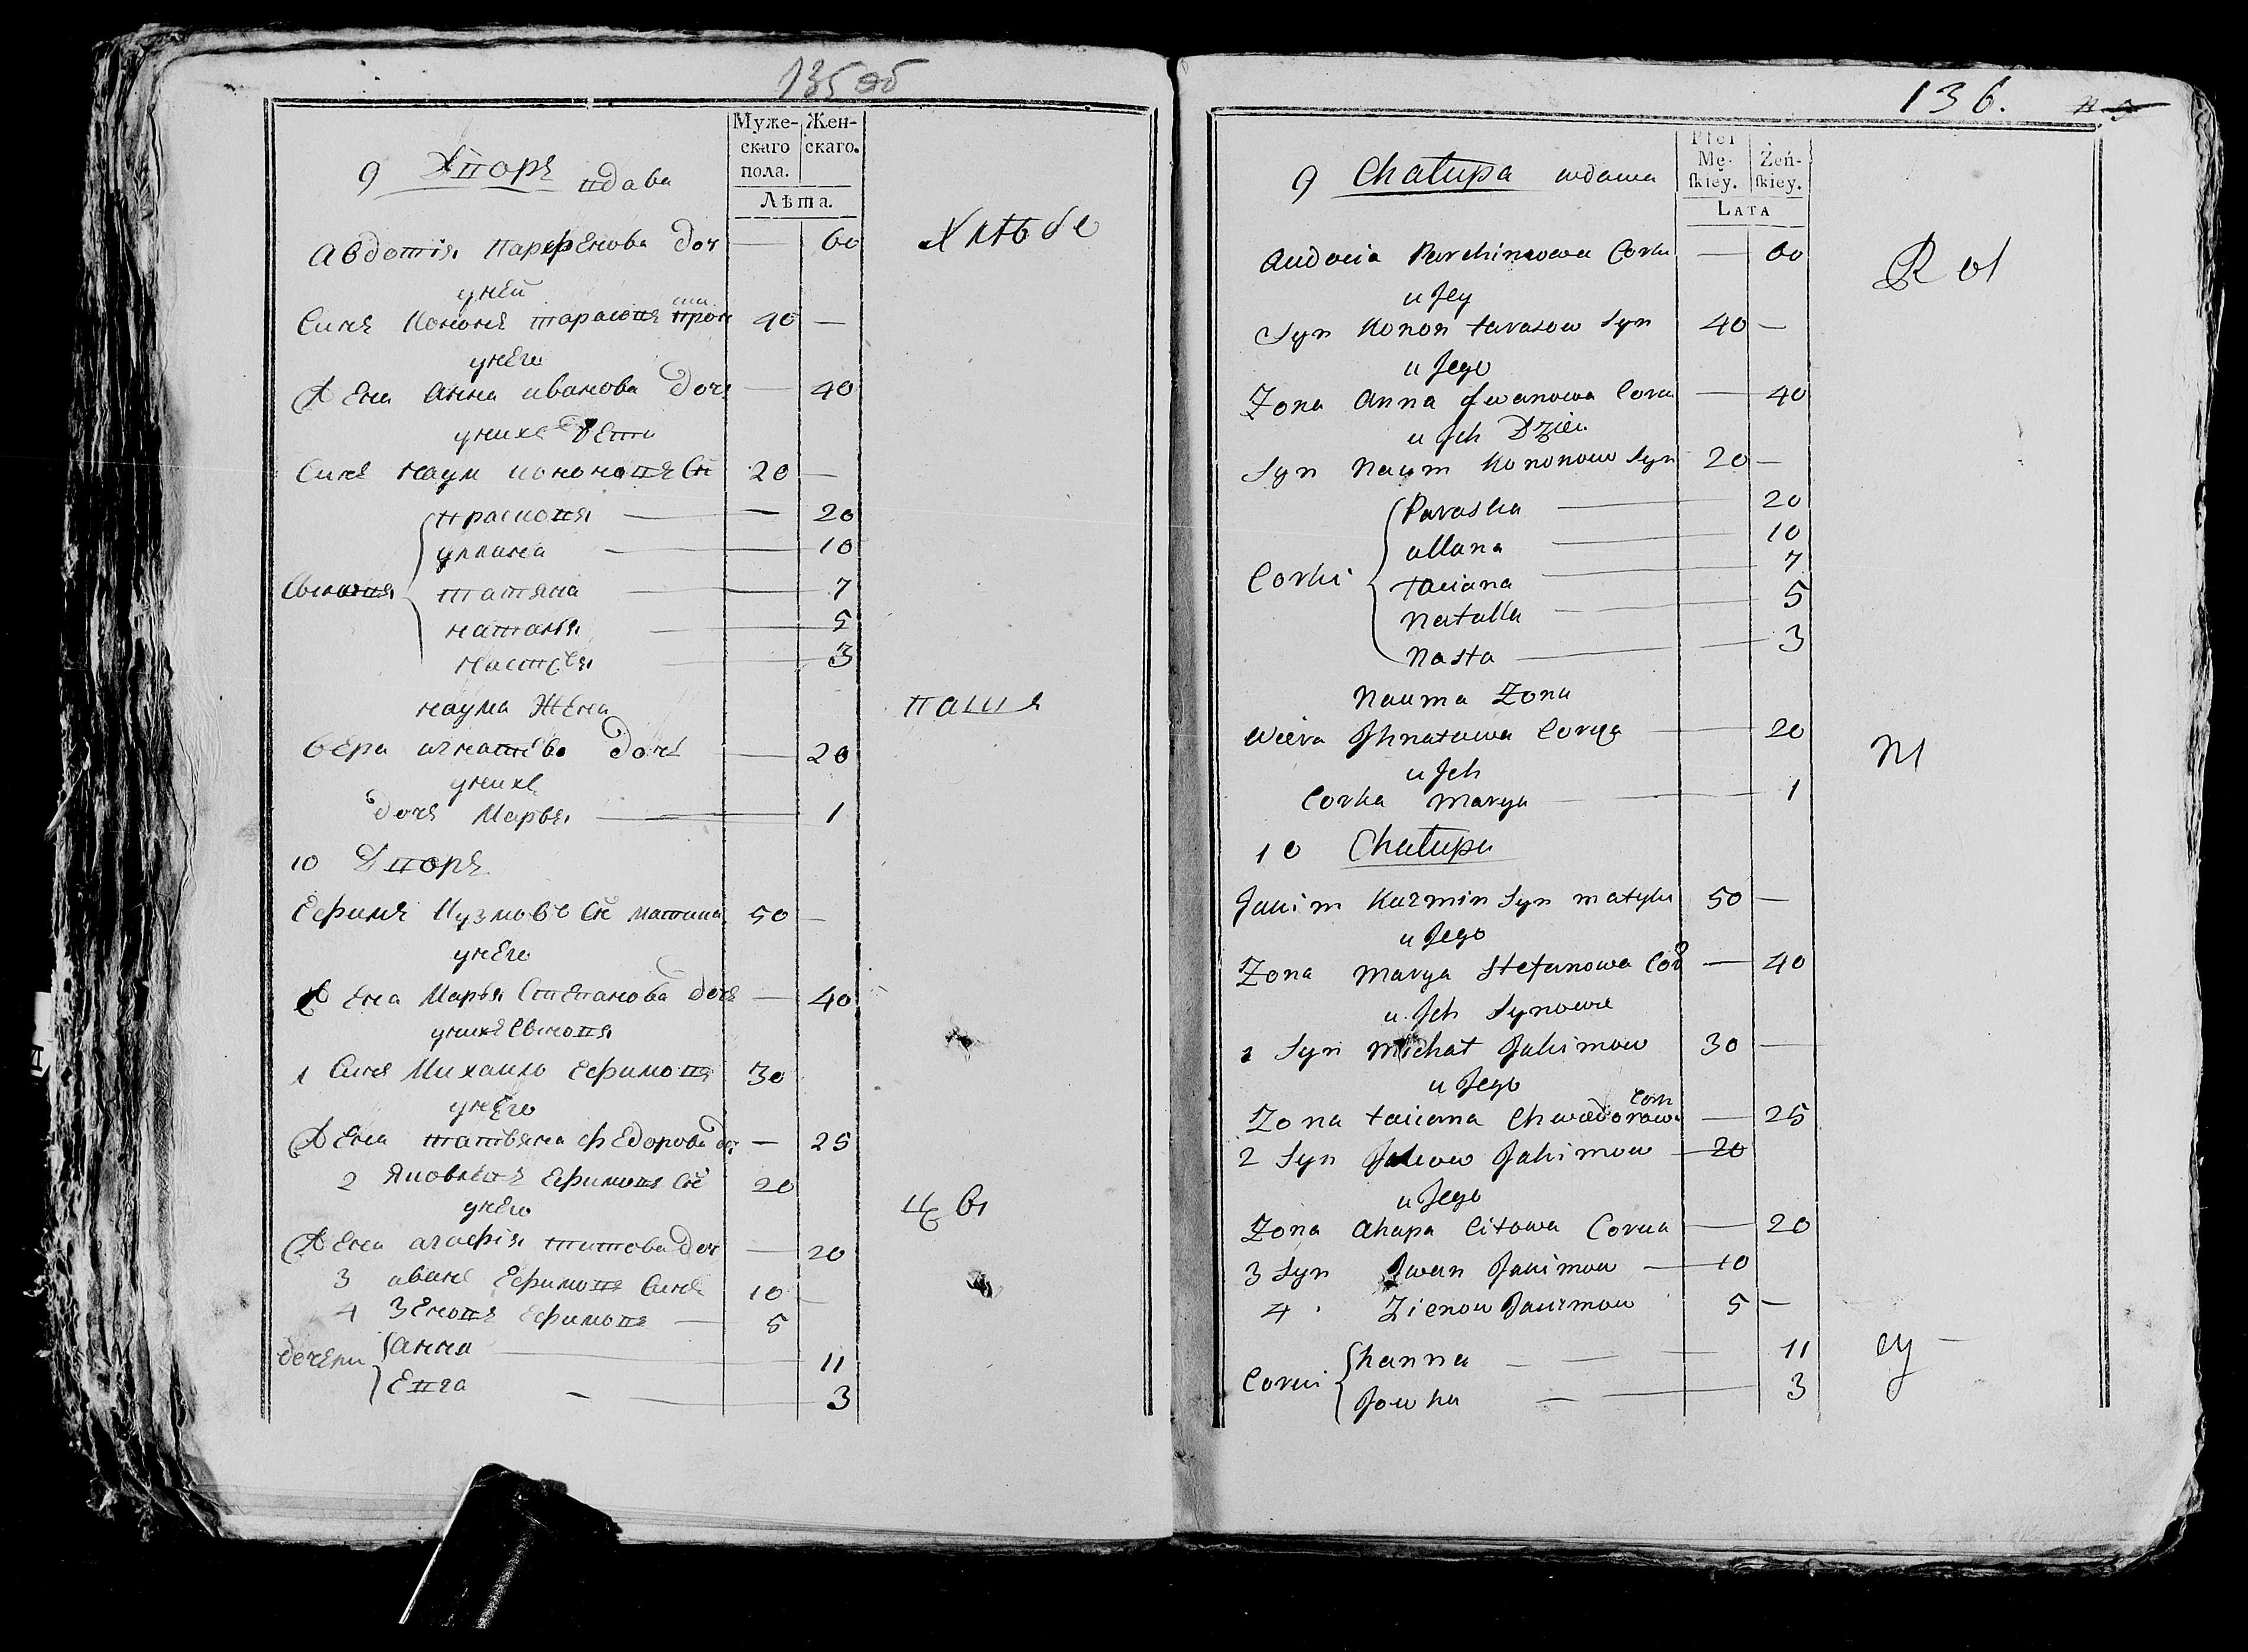 135 об
Муже-
скаго
пола.
Жен-
скаго.
Лѣта.
9 Дворъ вдова
Авдотія Парфенова доч — 60
унеи
Синъ Кононъ тарасовъ 40 —
унего
Жена Анна иванова дочъ — 40
унихъ дети
Синъ наум кононовъ Сн 20 —
прасковя — 20
уллина — 10
татяна — 7
наталя — 5
настѣя — 3
наума Жена
вера игнатева дочъ — 20
унихъ
дочъ Марья — 1
10 Дворъ
Ефимъ Кузмовъ Сн матика 50 —
унего
Жена Марья Степанова дочъ — 40
унихъ Свновя
1 Синъ Михаило Ефимовъ 30
унего
Жена татьяна Федорова до — 25
2 Яковлевъ Ефимовъ Сн 20
унего
Жена агафія титова доч — 20
3 иванъ Ефимовъ Синъ 10 —
4 Зеновъ Ефимовъ — 5
дочери
Анна — 11
Евга — 3
136.
Płci
Mę-
ſkiey.
Żeń-
ſkiey.
LATA
9 Chałupa wdowa
Audocia Parchimowa Corka — 60
u Jey
Syn Konon tarasow Syn 40 —
u Jego
Zona Anna Jwanowa Corka — 40
u Jch Dzieci
Syn Naum Kononow Syn 20 —
Corki
Paraska — 20
ullana — 10
taciana — 7
Natalla — 5
Nasta — 3
Nauma Zona
Wiera Jhnatowa Corka — 20
u Jch
Corka Marya — 1
10 Chałupa
Jakim Kuzmin Syn matyka 50 —
u Jego
Zona Marya Stefanowa Cor — 40
u Jch Synowie
1 Syn Michał Jakimow 30 —
u Jego
Zona taciana Chwiedorowa Corn — 25
2 Syn Jakow Jakimow — 20
u Jego
Zona Ahapa Citowa Corka — 20
3 Syn Jwan Jakimow — 10
4 Zienow Jakimow 5 —
Corki
hanna — 11
Jowka — 3